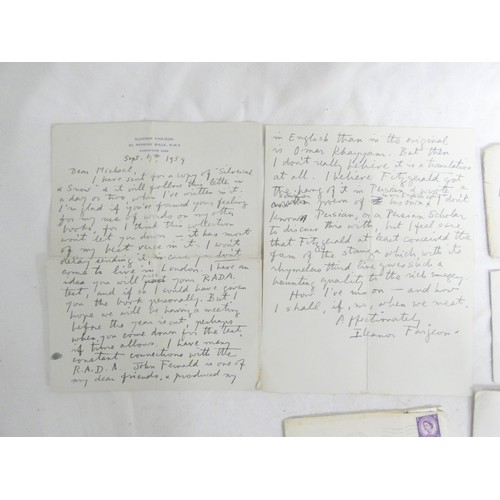 ELEANOR FARJEON
Sept. 1959
Dear Michael,
I have sent for a copy of 'Silversand
& Snow' & it will follow this letter in
a day or two, when I've written in it.
I'm glad if you've formed your feeling
for my use of words on my other
books, for I think this collection
won't let you down — it has most
of my best verse in it. I won't
delay sending it, in case you don't
come to live in London. I have an
idea you will your R.A.D.A.
test, and if I could have given
you the book personally. But I
hope we will be having a meeting
before the year is out, perhaps
when you come down for the test,
if time allows. I have many
constant connections with the
R.A.D.A. John Fernald is one of
my dear friends, & produced my
in English than in the original
is Omar Khayyam. But then
I don't really believe it is a translation
at all. I believe Fitzgerald got
the hang of it in Persian & wrote a
poem of his own. I don't
know Persian, or a Persian Scholar
to discuss this with, but I feel sure
that Fitzgerald at least conserved the
form of the stanza which with its
rhymeless third line gives such a
haunting quality to the rich imagery.
How I've run on — and how
I shall, if, or, when we meet.
Affectionately,
Eleanor Farjeon.